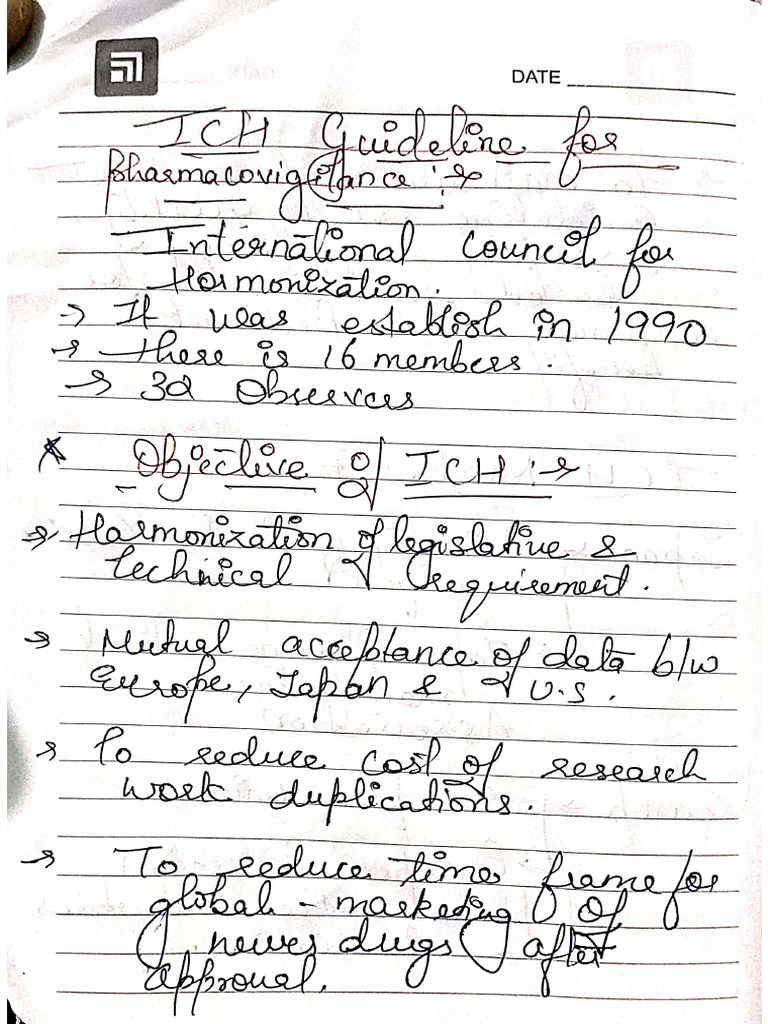 DATE
ICH Guideline for
Pharmacovigilance :-
International council for
Harmonization.
→ It was establish in 1990
→ there is 16 members.
→ 32 Observers
* Objective of ICH :-
→ Harmonization of legislative &
technical requirement.
→ Mutual acceptance of data b/w
Europe, Japan & U.S.
→ To reduce cost of research
work duplications.
→ To reduce time frame for
global - marketing of
newer drugs after
approval.